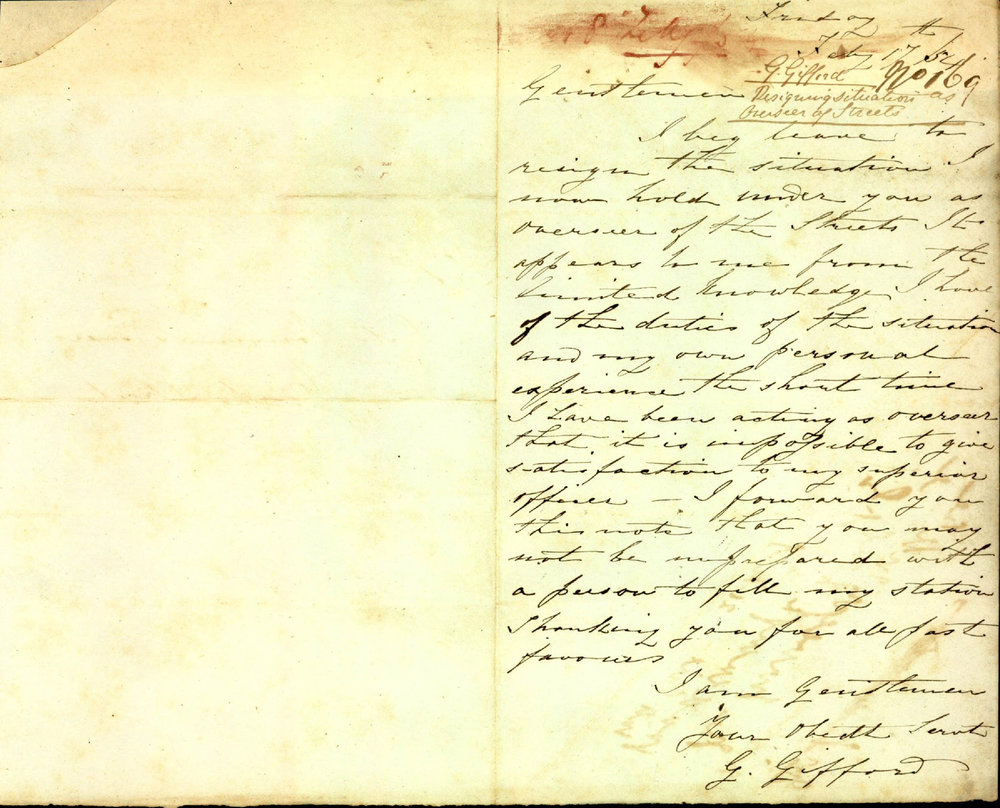 Friday
Feby 17th /54
No 169
G. Gifford
Resigning situation as
Overseer of Streets
Gentlemen
I beg leave to
resign the situation I
now hold under you as
overseer of the Streets It
appears to me from the
limited knowledge I have
of the duties of the situation
and my own personal
experience the short time
I have been acting as overseer
that it is impossible to give
satisfaction to my superior
officer – I forward you
this note that you may
not be unprepared with
a person to fill my station
Thanking you for all past
favours
I am Gentlemen
Your Obedt Servt
G. Gifford